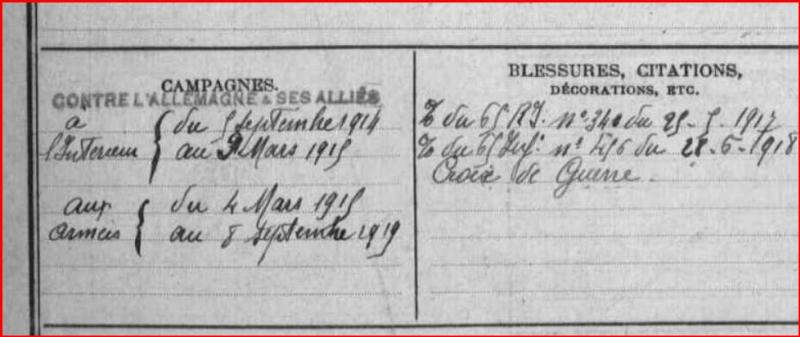 CAMPAGNES.
CONTRE L'ALLEMAGNE & SES ALLIÉS
à l'Interieur
du 5 septembre 1914
au Mars 1915
aux armées
du 4 Mars 1915
au 8 septembre 1919
BLESSURES, CITATIONS,
DÉCORATIONS, ETC.
du 65 R.I. n° 340 du 25-5-1917
du 65 Inf. n° 456 du 28-6-1918
Croix de Guerre.